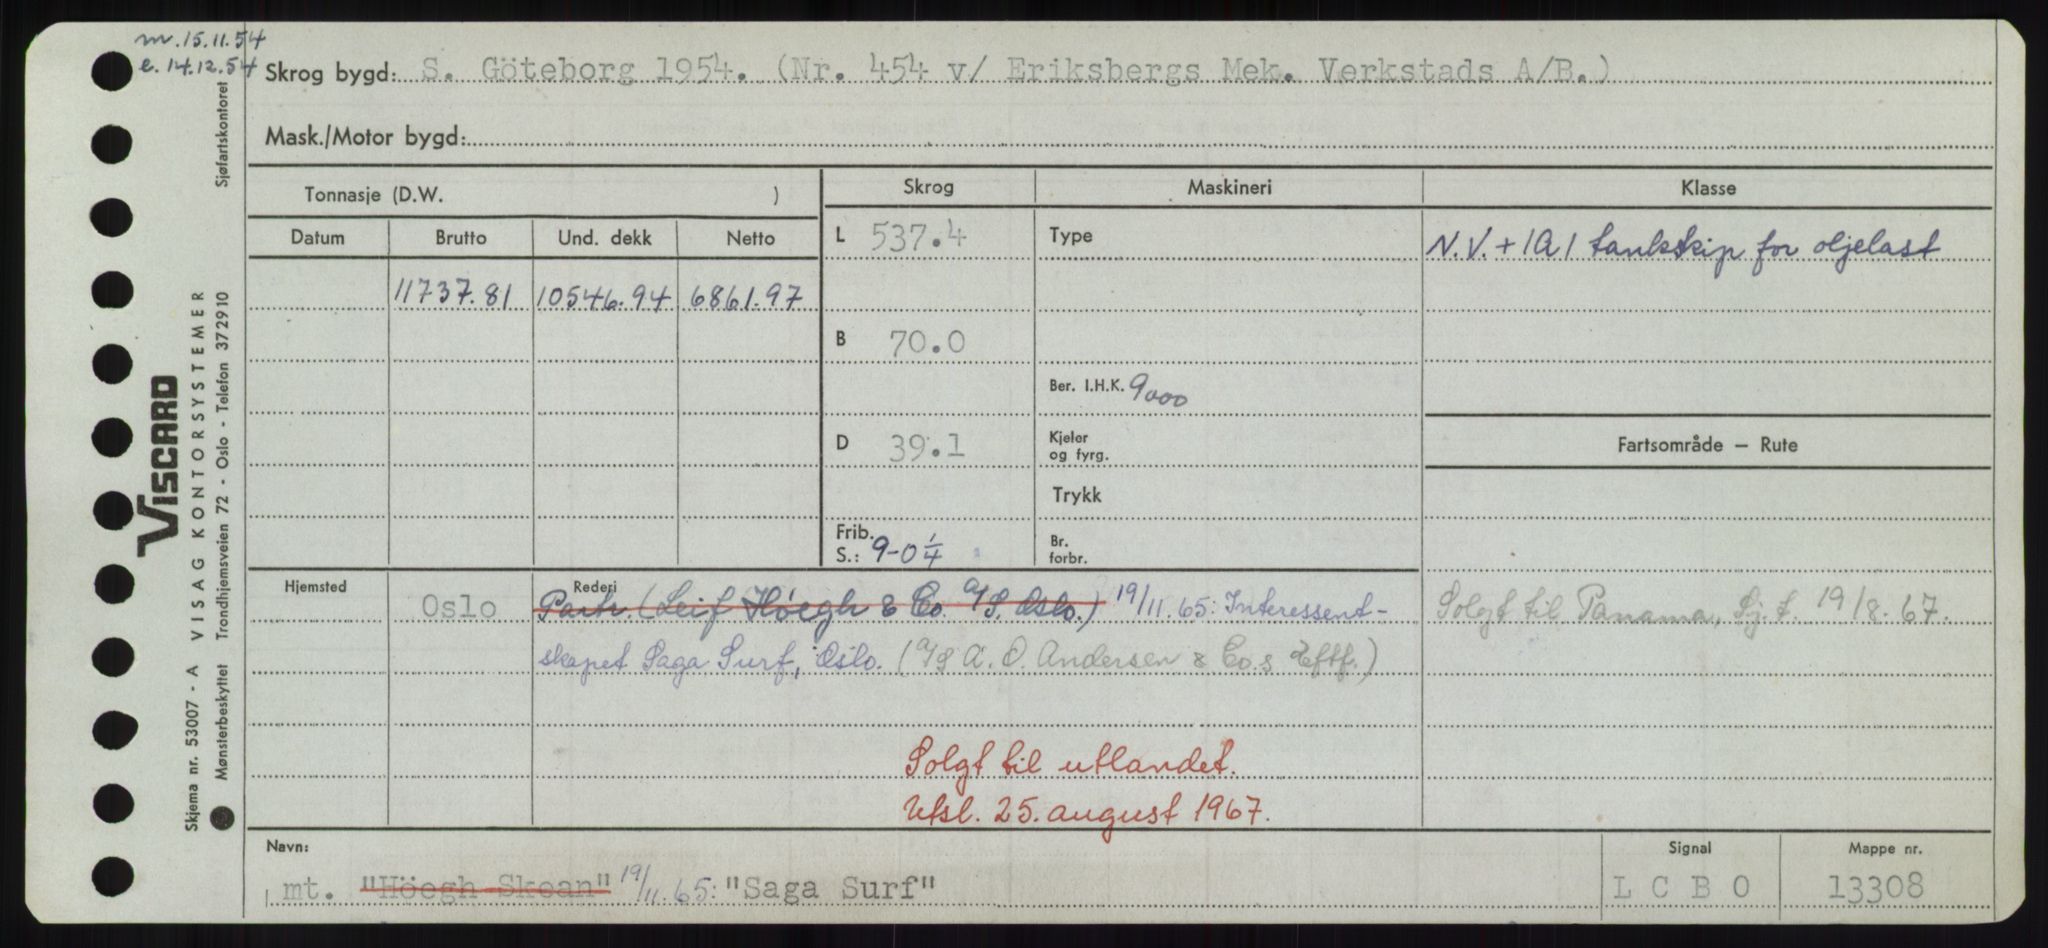 m. 15.11.54
e. 14.12.54
Skrog bygd: S. Göteborg 1954. (Nr. 454 v/ Eriksbergs Mek. Verkstads A/B.)
Mask./Motor bygd:
Tonnasje (D.W. )
Skrog Maskineri Klasse
Datum Brutto Und. dekk Netto
L 537.4 Type N.V. + 1A1 tankskip for oljelast
11737.81 10546.94 6861.97
B 70.0
Ber. I.H.K. 9000
D 39.1 Kjeler og fyrg. Fartsområde — Rute
Trykk
Frib. S.: 9-0 1/4 Br. forbr.
Hjemsted Oslo Rederi Partr. (Leif Höegh & Co. A/S, Oslo.) 19/11.65: Interessent- Solgt til Panama, Sj.t. 19/8.67.
skapet Saga Surf, Oslo. (A/S A. O. Andersen & Co.s Eftf.)
Solgt til utlandet.
Utsl. 25. august 1967.
Navn: Signal Mappe nr.
mt. "Höegh Skean" 19/11.65: "Saga Surf" L C B O 13308
VISCARD
Skjema nr. 53007 - A VISAG KONTORSYSTEMER
Mønsterbeskyttet Trondhjemsveien 72 - Oslo - Telefon 372910 Sjøfartskontoret